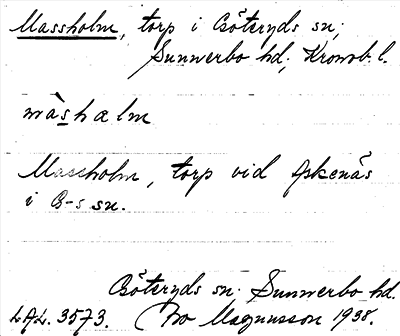 Massholm, torp i Göteryds sn,
Sunnerbo hd, Kronob. l.
màshælm
Massholm, torp vid Askenäs
i G-s sn.
Göteryds sn. Sunnerbo hd.
L.A.L. 3573. Bo Magnusson 1938.